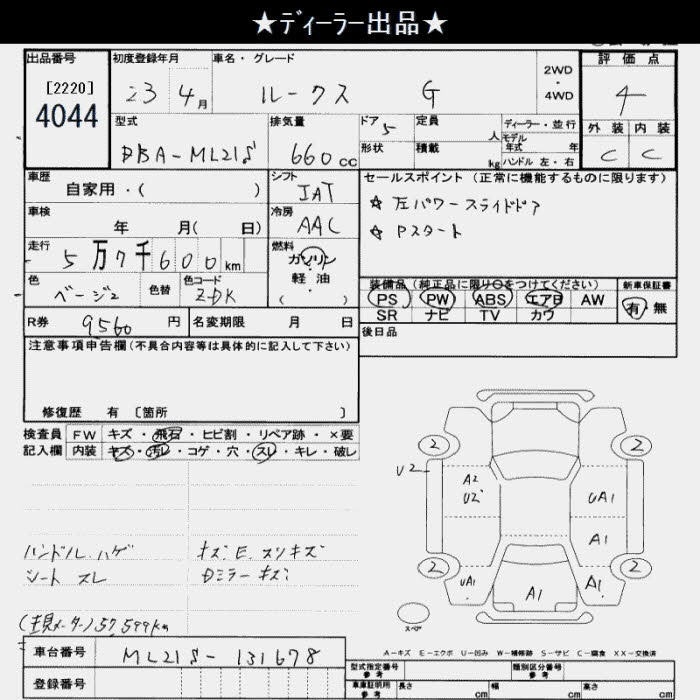 ★ディーラー出品★
出品番号 初度登録年月 車名・グレード 2WD ・ 4WD 評価点
[2220] 23 4月 ルークス G 4
4044
型式 排気量 ドア 5 定員 人 ディーラー・並行 外装 内装
モデル年式 年
DBA-ML21S 660cc 形状 積載 kg ハンドル 左・右 C C
車歴 シフト セールスポイント(正常に機能するものに限ります)
自家用・( ) IAT ☆ 左パワースライドドア
車検 冷房
年 月( 日) AAC ☆ Pスタート
走行 燃料
5万7千600km ガソリン・軽油・( )
色 色替 色コード 装備品(純正品に限り○をつけてください) 新車保証書
ベージュ ZDK PS PW ABS エアB AW 有・無
SR ナビ TV カワ
R券 9560円 名変期限 月 日 後日品
注意事項申告欄(不具合内容等は具体的に記入して下さい)
修復歴 有 〔箇所 〕
検査員 FW キズ・飛石・ヒビ割・リペア跡・×要
記入欄 内装 キズ・汚レ・コゲ・穴・スレ・キレ・破レ
ハンドル ハゲ キズ.E.スリキズ
シート スレ Dミラーキズ
(現メーター)57,599km
2 2
U2 A2
U2 UA1
A1
2 2
UA1 A1 A1
スペア
A-キズ E-エクボ U-凹み W-補修跡 S-サビ C-腐食 XX-交換済
車台番号 ML21S-131678 型式指定番号 参考 類別区分番号 参考
登録番号 車庫証明用 参考 長さ cm 幅 cm 高さ cm